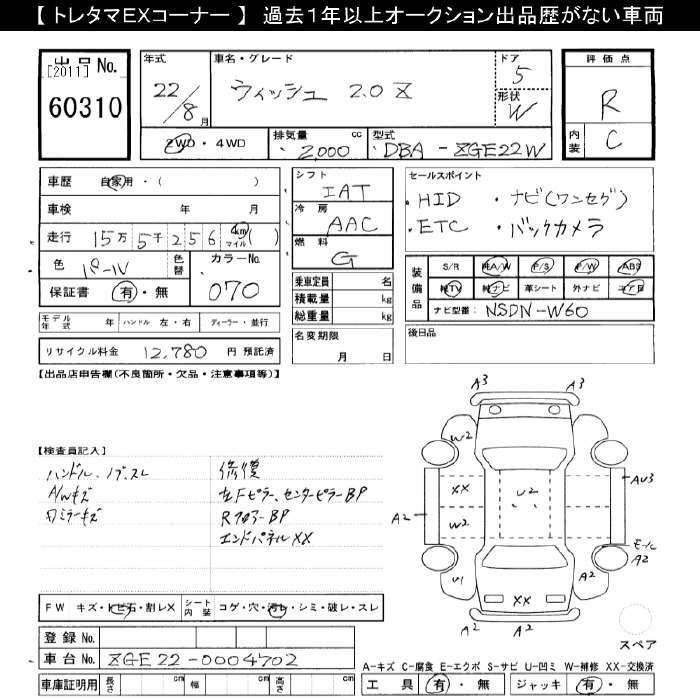 【 トレタマEXコーナー 】 過去1年以上オークション出品歴がない車両
出品 No.
[2011]
60310
年式
22/8月
車名・グレード
ウィッシュ 2.0 Z
ドア
5
形状
W
評価点
R
内装
C
2WD・4WD
排気量 cc
2,000
型式
DBA - ZGE22W
車歴 自家用・( )
車検 年 月
走行 15万 5千 256 km マイル ( )
色 パール
色替
カラーNo.
070
保証書 有・無
シフト
IAT
冷房
AAC
燃料
G
乗車定員 名
積載量 kg
総重量 kg
セールスポイント
・HID ・ナビ(ワンセグ)
・ETC ・バックカメラ
装備品
S/R 純A/W P/S P/W ABS
純TV 純ナビ 革シート 外ナビ エアB
ナビ型番: NSDN-W60
モデル年式 年 ハンドル 左・右 ディーラー・並行
リサイクル料金 12,780 円 預託済
名変期限
月 日
後日品
【出品店申告欄(不良箇所・欠品・注意事項等)】
【検査員記入】
ハンドル、ノブスレ
A/Wキズ
修復
左Fピラー、センターピラーBP
エンドパネルXX
A3
A3
W2
XX
W2
U2
A2
AU3
モール
A2
U1
A2
XX
A2
A2
スペア
FW キズ・トビ石・割レX
シート内装 コゲ・穴・汚レ・シミ・破レ・スレ
登録 No.
車台 No. ZGE22-0004702
車庫証明用 長さ cm 幅 cm 高さ cm
A-キズ C-腐食 E-エクボ S-サビ U-凹ミ W-補修 XX-交換済
工具 有・無 ジャッキ 有・無